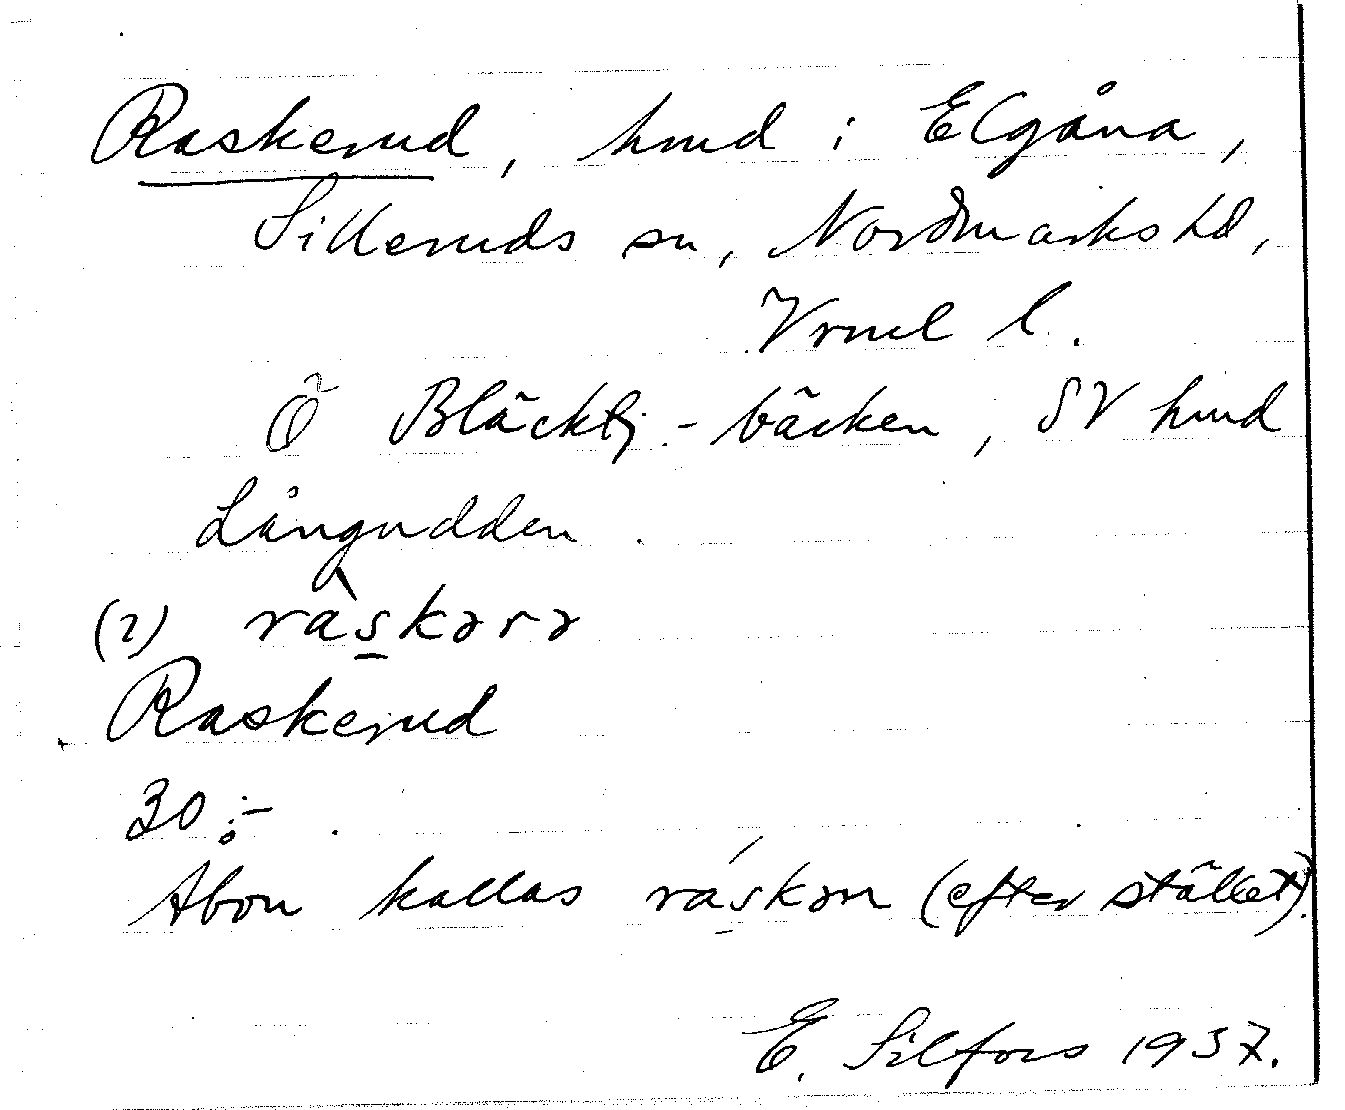 Raskerud, hmd i Elgåna,
Silleruds sn, Nordmarks hd,
Vrml l.
Ö Bläcktj.-bäcken, SV hmd
Långudden.
(2) ràskərə
Raskerud
30:-
Åbon kallas ráskən (efter stället).
E. Silfors 1937.